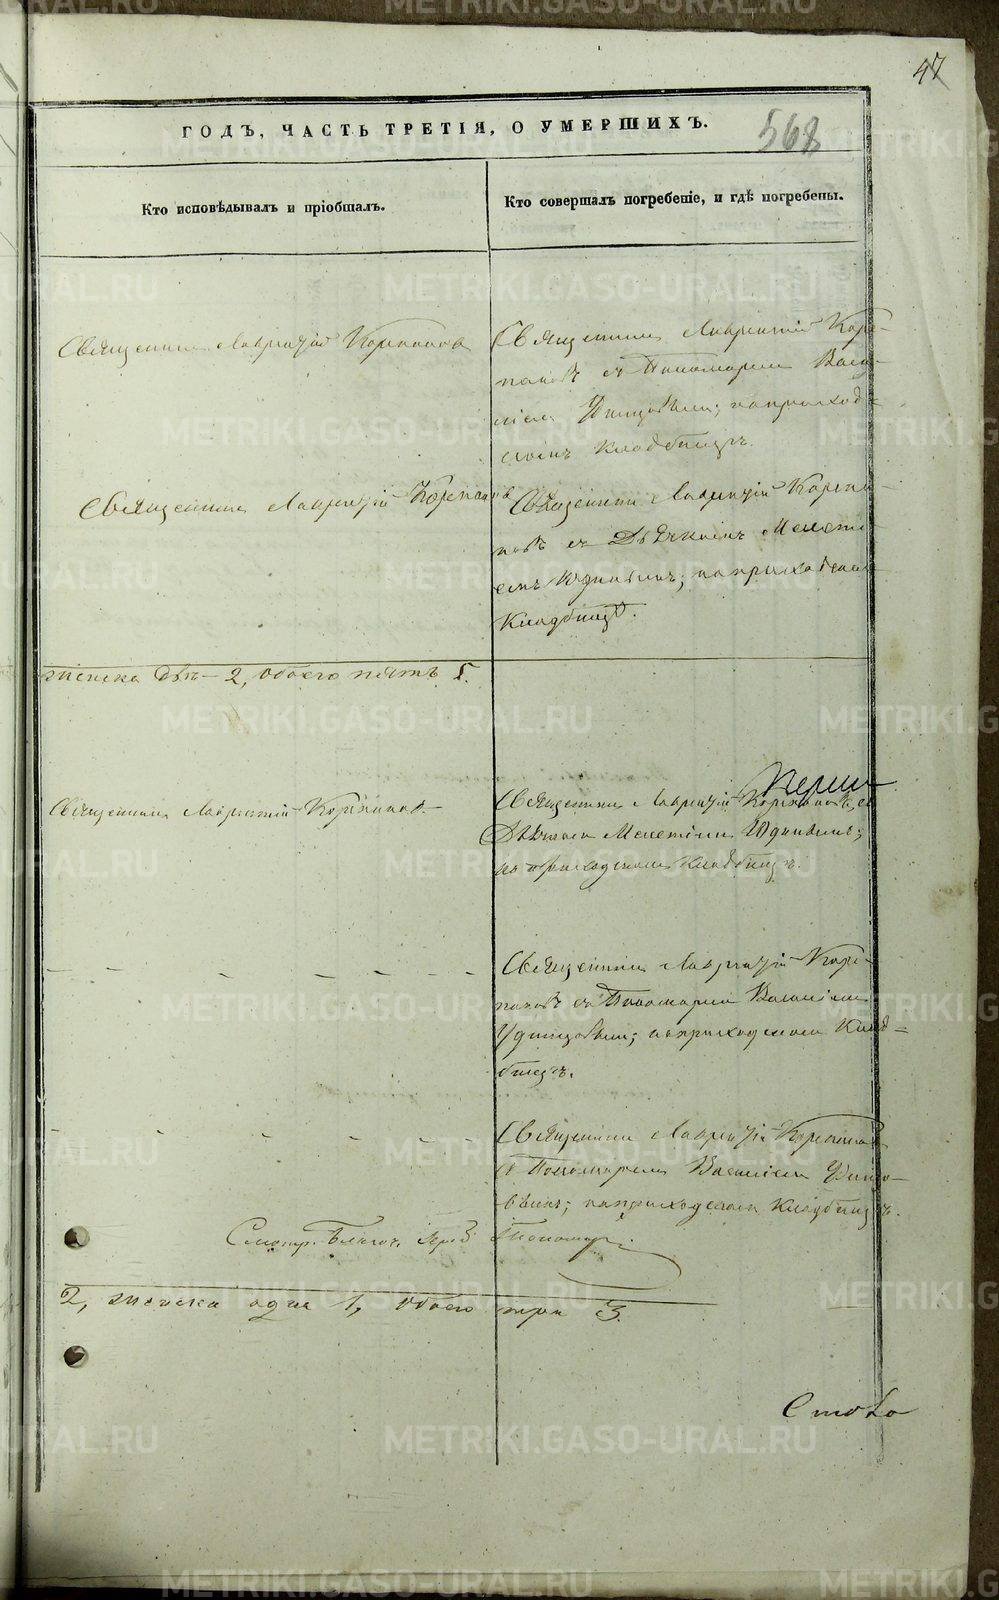 47
568
ГОДЪ, ЧАСТЬ ТРЕТІЯ, О УМЕРШИХЪ.
Кто исповѣдывалъ и пріобщалъ.
Кто совершалъ погребеніе, и гдѣ погребены.
Священникъ Лаврентій Корепановъ
Священникъ Лаврентій Коре-
пановъ съ Пономаремъ Васи-
ліемъ Удинцовымъ; на приход-
скомъ Кладбищѣ.
Священникъ Лаврентій Корепановъ
Священникъ Лаврентій Корепа-
новъ съ Дьячкомъ Мелеті-
емъ Юдинымъ; на приходскомъ
Кладбищѣ.
женска двѣ – 2, обоего пять 5.
Священникъ Лаврентій Корепановъ
Священникъ Лаврентій Корепановъ съ
Дьячкомъ Мелетіемъ Юдинымъ;
на приходскомъ Кладбищѣ.
Священникъ Лаврентій Коре-
пановъ съ Пономаремъ Василіемъ
Удинцовымъ; на приходскомъ Клад-
бищѣ.
Священникъ Лаврентій Корепановъ
съ Пономаремъ Василіемъ Удинцо-
вымъ; на приходскомъ Кладбищѣ.
Смотр. Благоч.
2, женска одна 1, обоего три 3.
METRIKI.GASO-URAL.RU